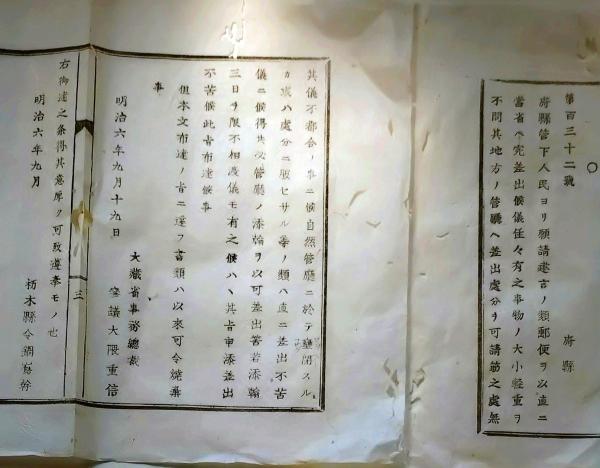 第百三十二號
府縣
府縣管下人民ヨリ願請建言ノ類郵便ヲ以直ニ
當省ヘ宛差出候儀往々有之事物ノ大小輕重ヲ
不問其地方ノ管廳ヘ差出處分ヲ可請筋之處無
其儀不都合ノ事ニ候自然管廳ニ於テ壅閉スル
カ或ハ處分ニ服セサル等ノ類ハ直ニ差出不苦
儀ニ候得共必管廳ノ添翰ヲ以可差出筈若添翰
三日ヲ限不相渡儀モ有之候ハヽ其旨申添差出
不苦候此旨布達候事
但本文布達ノ旨ニ違フ書類ハ以來可令燒棄
事
明治六年九月十九日
大藏省事務總裁
參議大隈重信
三
右御達之条得其意厚ク可致遵奉モノ也
明治六年九月
栃木縣令鍋島幹